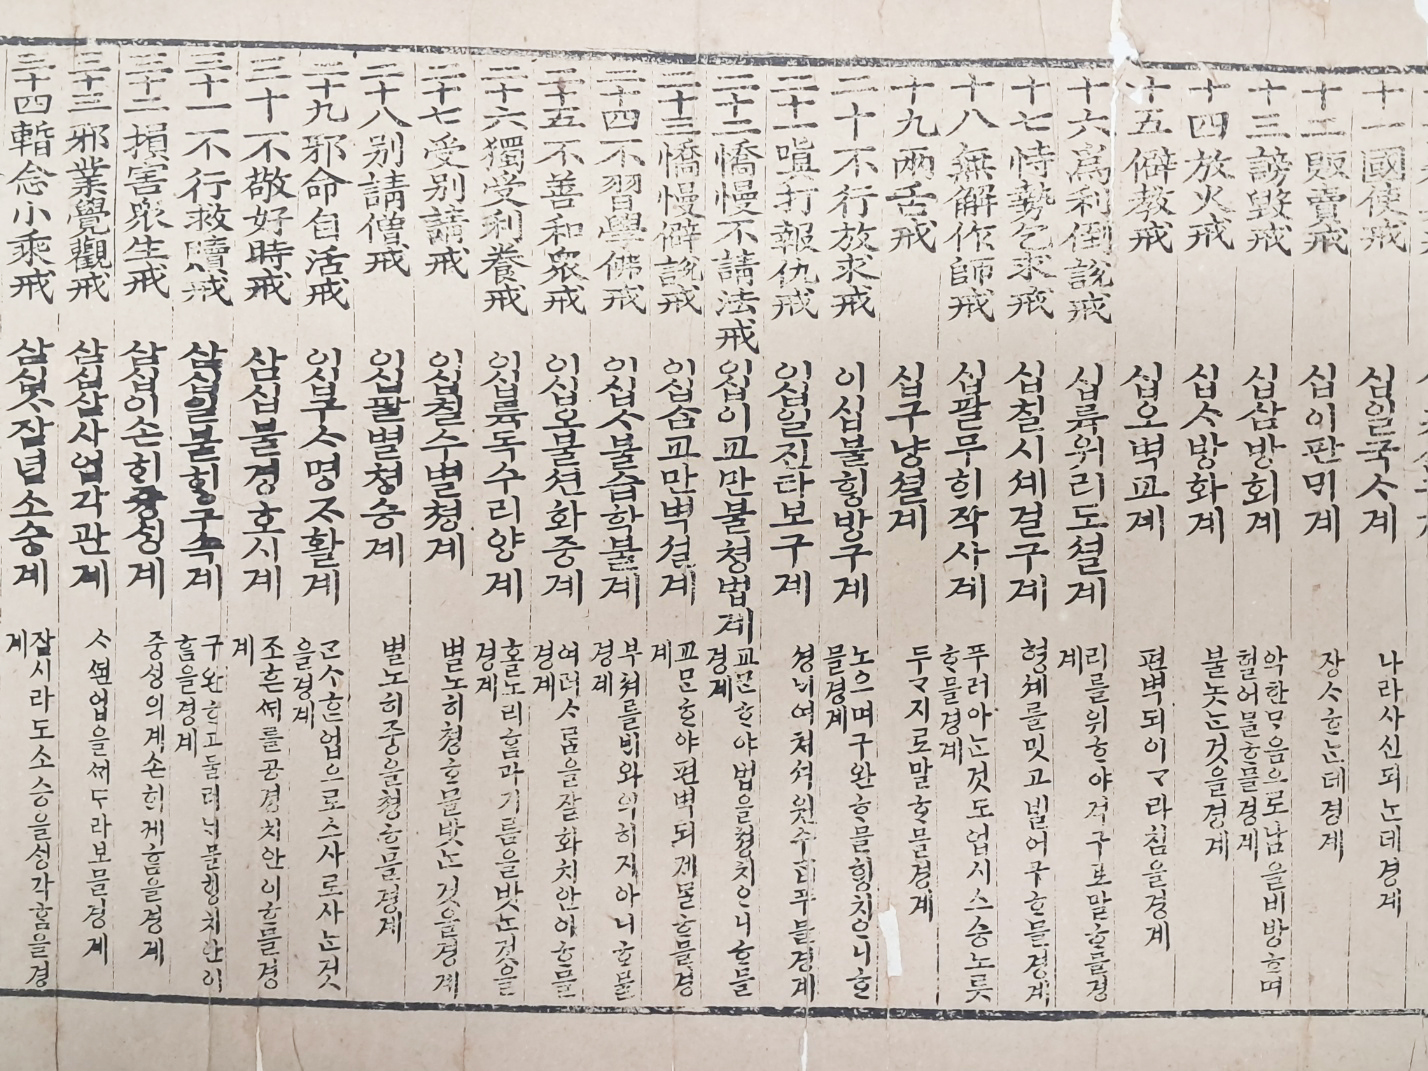 十一國使戒 십일국ᄉ계 나라사신되ᄂᆫ데경계
十二販賣戒 십이판ᄆᆡ계 장ᄉᄒᄂᆫ데경계
十三謗毁戒 십삼방회계 악한ᄆᆞ음으로남을비방ᄒᆞ며헐어믈ᄒᆞ믈경계
十四放火戒 십ᄉᆞ방화계 불놋ᄂᆞᆫ것을경계
十五僻教戒 십오벽교계 편벽되이ᄀᆞ라침을경계
十六爲利倒說戒 십륙위리도셜계 리를위ᄒᆞ야것구로말ᄒᆞ믈경계
十七恃勢乞求戒 십칠시셰걸구계 형셰를밋고빌어구ᄒᆞ믈경계
十八無解作師戒 십팔무ᄒᆡ작사계 푸러아ᄂᆞᆫ것도업시스승노릇ᄒᆞ믈경계
十九兩舌戒 십구냥셜계 두ᄀᆞ지로말ᄒᆞ믈경계
二十不行放求戒 이십불ᄒᆡᆼ방구계 노으며구완ᄒᆞ믈ᄒᆡᆼ치으니ᄒᆞ믈경계
二十一嗔打報仇戒 이십일진타보구계 셩ᄂᆡ여쳐셔원수
二十二憍慢不請法戒 이십이교만불쳥법계 교만ᄒᆞ야법을쳥치으니ᄒᆞ믈경계
二十三憍慢僻說戒 이십삼교만벽셜계 교만ᄒᆞ야편벽되게믈ᄒᆞ믈경계
二十四不習學佛戒 이십ᄉᆞ불습학불계 부쳐를ᄇᆡ와익히지아니ᄒᆞ믈경계
二十五不善和衆戒 이십오불션화중계 여러ᄉᆞᄅᆞᆷ을잘화치안이ᄒᆞ믈경계
二十六獨受利養戒 이십륙독수리양계 홀노리홈과기름을밧ᄂᆞᆫ것을경계
二十七受別請戒 이십칠수별쳥계 별노히쳥ᄒᆞ믈밧ᄂᆞᆫ것을경계
二十八別請僧戒 이십팔별쳥승계 별노히중을쳥ᄒᆞ믈경계
二十九邪命自活戒 이십구ᄉᆞ명ᄌᆞ활계 업으로스사로사ᄂᆞᆫ것을경계
三十不敬好時戒 삼십불경호시계 조흔ᄯᅢ를공경치안이ᄒᆞ믈경계
三十一不行救贖戒 삼십일불ᄒᆡᆼ구속계 구완ᄒᆞ고둘려ᄂᆡ믈ᄒᆡᆼ치안이홈을경계
三十二損害衆生戒 삼십이손ᄒᆡ중ᄉᆡᆼ계 중ᄉᆡᆼ의게손ᄒᆡ게홈을경계
三十三邪業覺觀戒 삼십삼사업각관계 업을ᄭᆡᄃᆞ라보믈경계
三十四暫念小乘戒 삼십ᄉᆞ잠념소승계 잠시라도소승을ᄉᆡᆼ각홈을경계